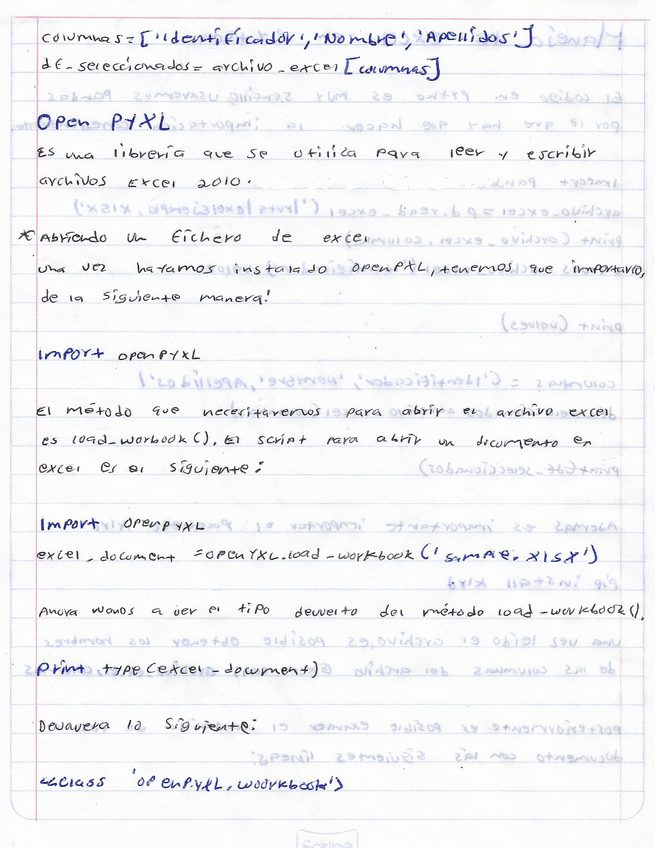 columnas = ['Identificador', 'Nombre', 'Apellidos']
df_seleccionados = archivo_excel [columnas]
Open PYXL
Es una librería que se utiliza para leer y escribir
archivos Excel 2010.
* Abriendo un fichero de excel
una vez hayamos instalado OpenPXL, tenemos que importarlo,
de la siguiente manera:
import openPYXL
El método que necesitaremos para abrir el archivo excel
es load_worbook(). El script para abrir un documento en
excel es el siguiente:
Import OpenPYXL
excel_document = openYXL.load_workbook ('sample.xlsx')
Ahora vamos a ver el tipo devuelto del método load_workbook().
Print type (excel_document)
Devolvera lo siguiente:
<<class 'openPYXL.woorkbook')